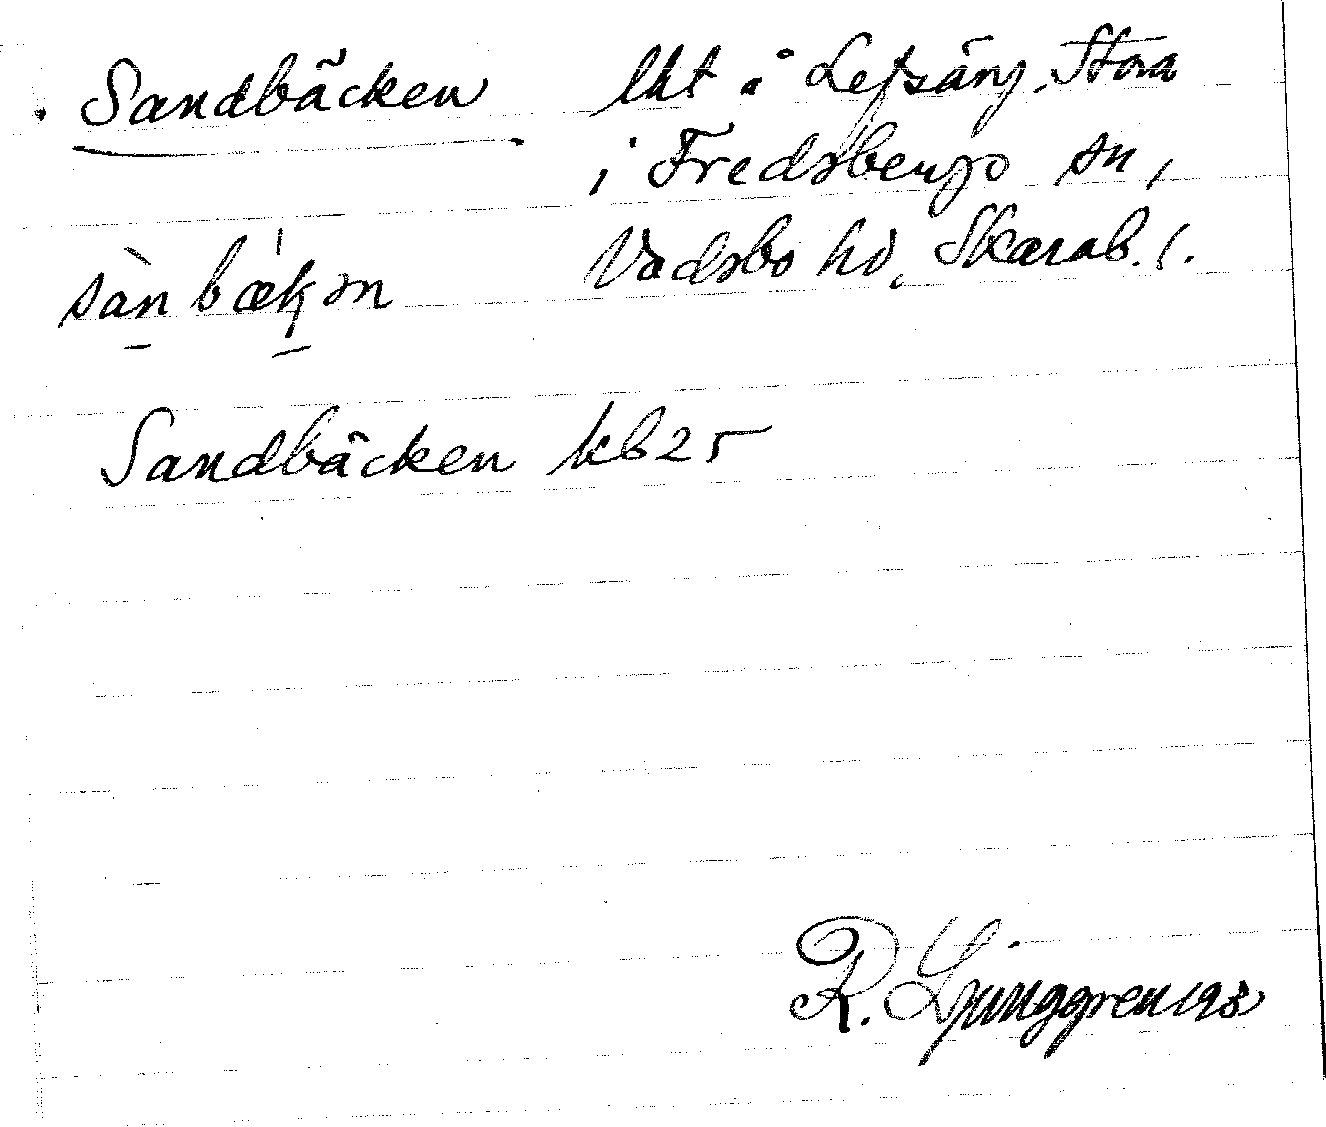 Sandbäcken lht å Lefsäng, Stora
i Fredsbergs sn,
sànbækən Vadsbo hd, Skarab. l.
Sandbäcken kb 25
R. Ljunggren 193